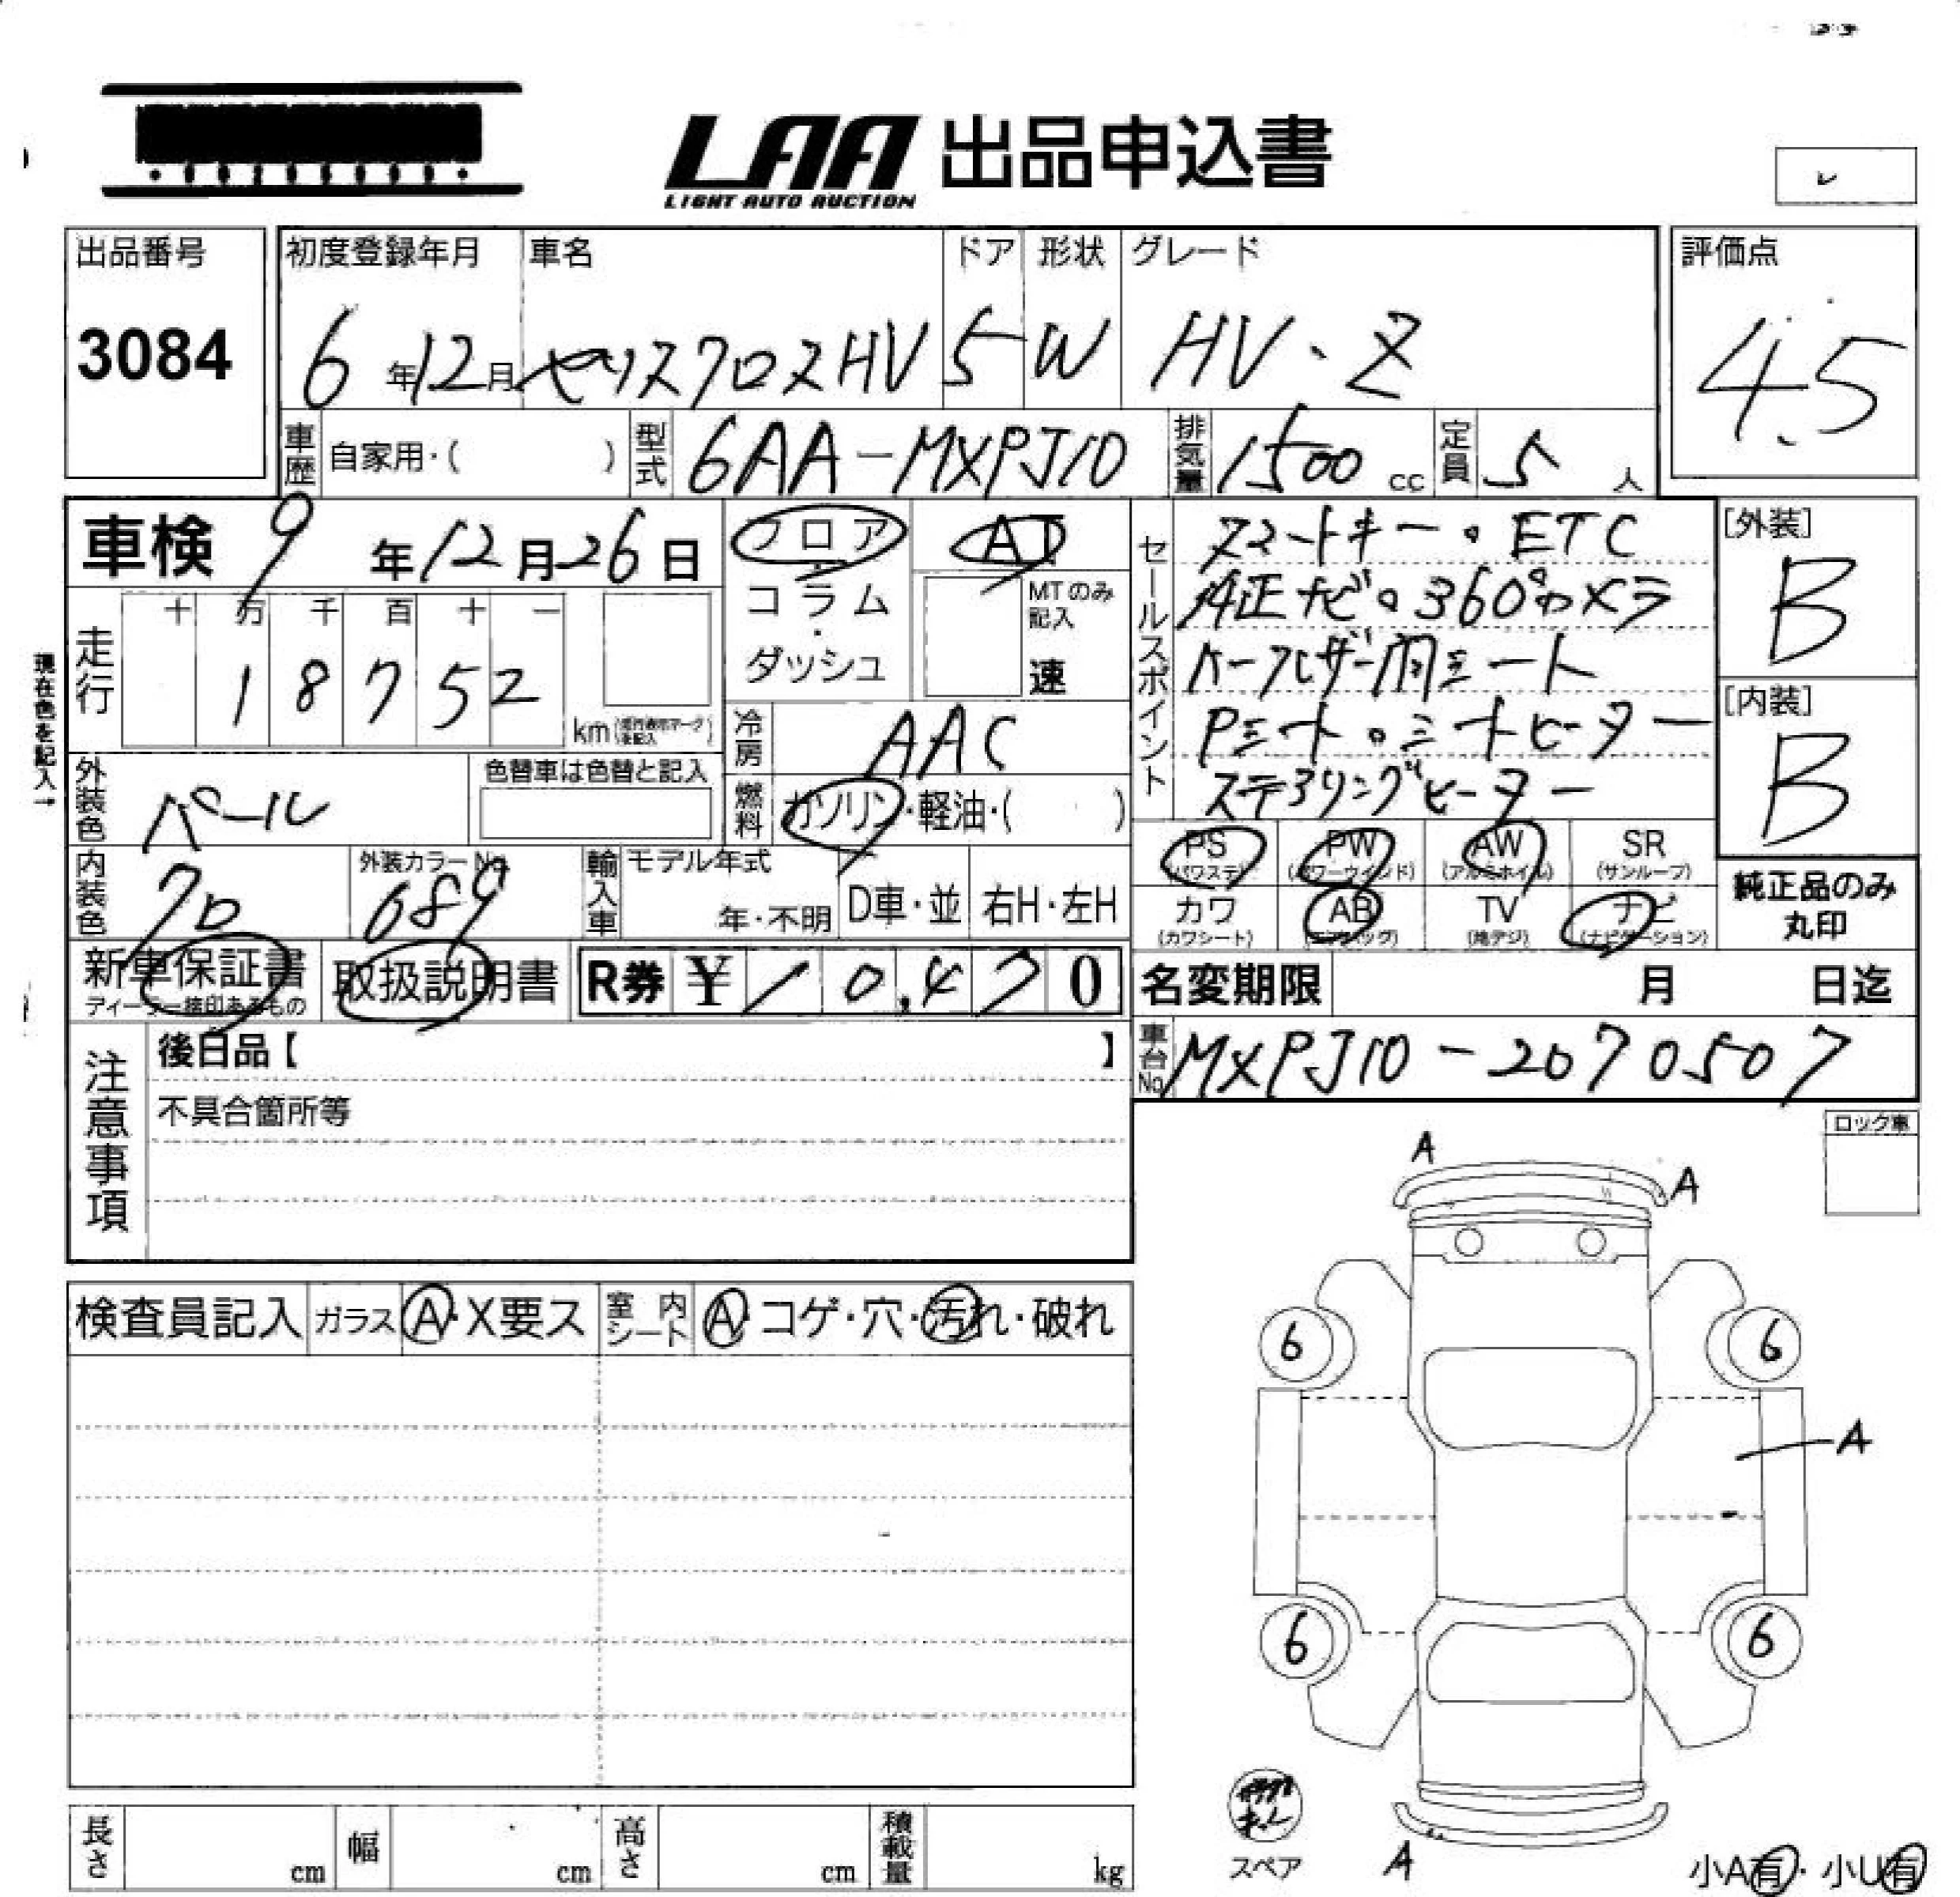 LAA 出品申込書
LIGHT AUTO AUCTION
出品番号
3084
初度登録年月
6年12月
車名
ヤリスクロスHV
ドア
5
形状
W
グレード
HV・Z
評価点
4.5
車歴 自家用・( )
型式 6AA-MXPJ10
排気量 1500cc
定員 5人
車検 9年12月26日
フロア・コラム・ダッシュ
AT
MTのみ記入
速
走行 十万千百十一
18752
km (走行表示マークを記入)
現在色を記入→
冷房 AAC
外装色 パール
色替車は色替と記入
燃料 ガソリン・軽油・( )
内装色 クロ
外装カラーNo. 689
輸入車 モデル年式
年・不明 D車・並 右H・左H
新車保証書
ディーラー捺印あるもの
取扱説明書
R券 ¥10,470
セールスポイント
スマートキー・ETC
純正ナビ。360°カメラ
ハーフレザー調シート
Pシート。シートヒーター
ステアリングヒーター
[外装]
B
[内装]
B
PS PW AW SR
(パワステ) (パワーウインド) (アルミホイル) (サンルーフ)
カワ AB TV ナビ
(カワシート) (エアバッグ) (地デジ) (ナビゲーション)
純正品のみ
丸印
名変期限 月 日迄
車台No. MXPJ10-2070507
注意事項
後日品【 】
不具合箇所等
ロック車
検査員記入 ガラス A・X要ス 室内シート A・コゲ・穴・汚れ・破れ
A
A
6 6
A
6 6
スペア
A
小A有・小U有
長さ cm 幅 cm 高さ cm 積載量 kg